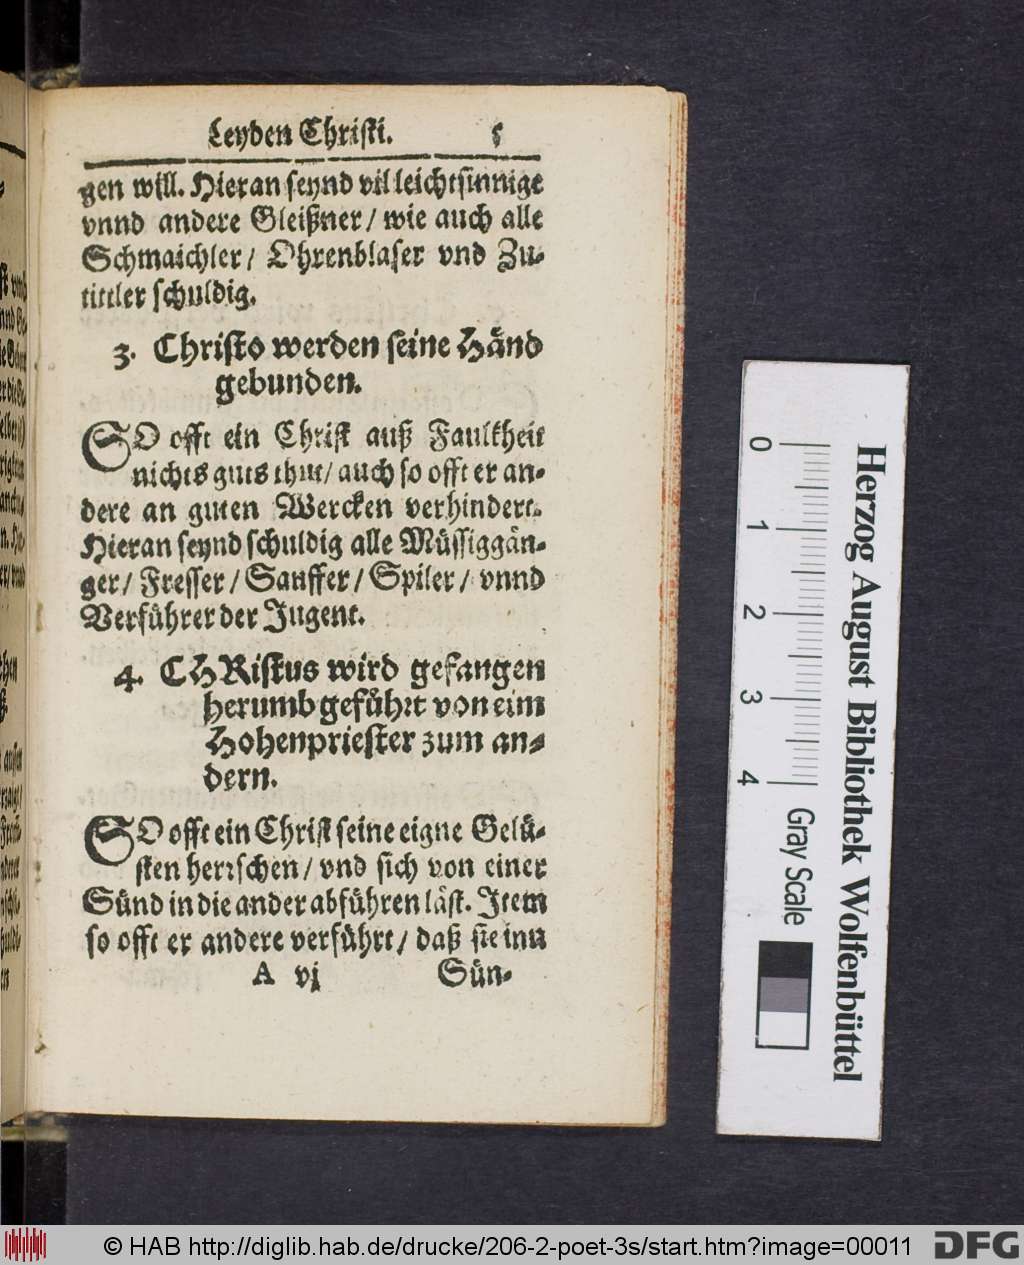 Leyden Christi. 5
gen will. Hieran seynd vil leichtsinnige
vnnd andere Gleißner / wie auch alle
Schmaichler / Ohrenblaser vnd Zu-
tittler schuldig.
3. Christo werden seine Händ
gebunden.
SO offt ein Christ auß Faulkheit
nichts guts thut / auch so offt er an-
dere an guten Wercken verhindert.
Hieran seynd schuldig alle Müssiggän-
ger / Fresser / Sauffer / Spiler / vnnd
Verführer der Jugent.
4. CHRistus wird gefangen
herumb geführt von eim
Hohenpriester zum an-
dern.
SO offt ein Christ seine eigne Gelü-
sten herrschen / vnd sich von einer
Sünd in die ander abführen läst. Item
so offt er andere verführt / daß sie inn
A vj Sün-
Herzog August Bibliothek Wolfenbüttel
0 1 2 3 4 Gray Scale
© HAB http://diglib.hab.de/drucke/206-2-poet-3s/start.htm?image=00011 DFG